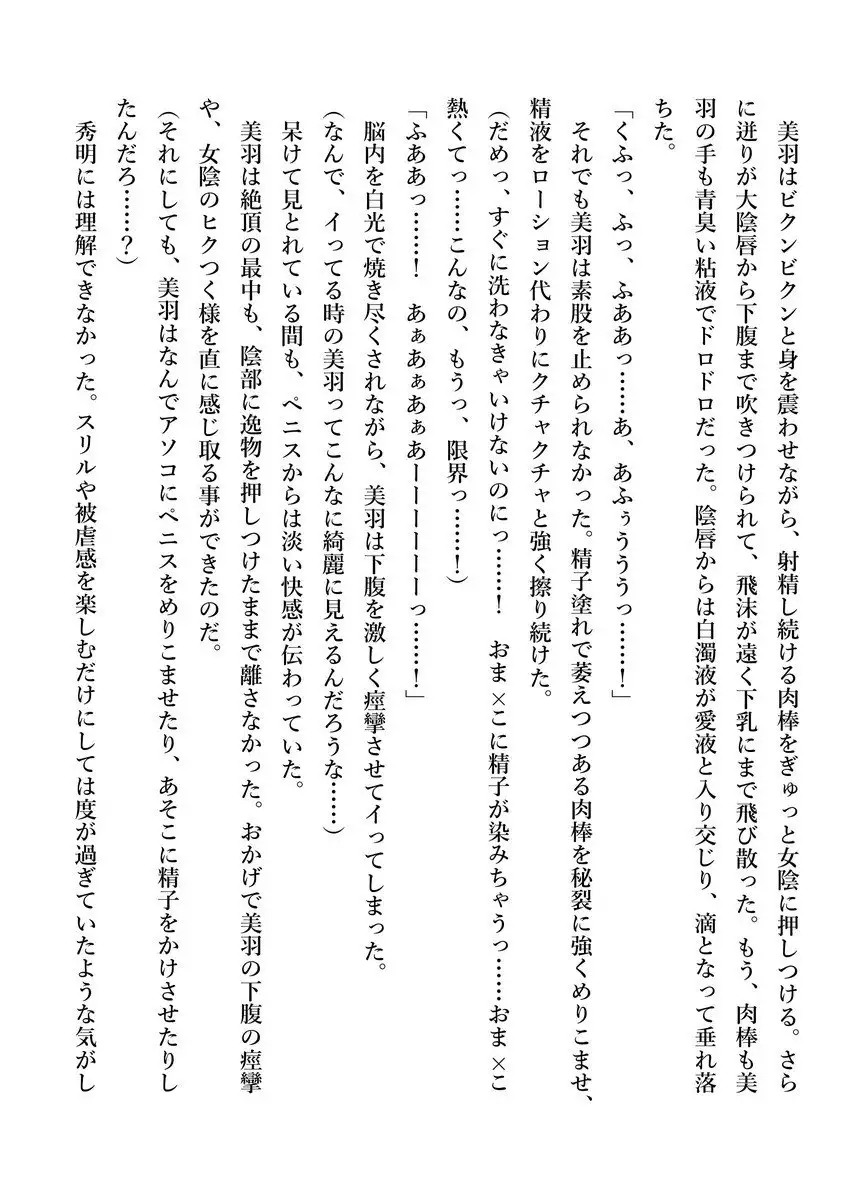 美羽はビクンビクンと身を震わせながら、射精し続ける肉棒をぎゅっと女陰に押しつける。さら
に迸りが大陰唇から下腹まで吹きつけられて、飛沫が遠く下乳にまで飛び散った。もう、肉棒も美
羽の手も青臭い粘液でドロドロだった。陰唇からは白濁液が愛液と入り交じり、滴となって垂れ落
ちた。
「くふっ、ふっ、ふああっ……あ、あふぅううっ……！」
それでも美羽は素股を止められなかった。精子塗れで萎えつつある肉棒を秘裂に強くめりこませ、
精液をローション代わりにクチャクチャと強く擦り続けた。
(だめっ、すぐに洗わなきゃいけないのにっ……！　おま×こに精子が染みちゃうっ……おま×こ
熱くてっ……こんなの、もうっ、限界っ……！)
「ふああっ……！　あぁあぁあぁあーーーーーーっ……！」
脳内を白光で焼き尽くされながら、美羽は下腹を激しく痙攣させてイってしまった。
(なんで、イってる時の美羽ってこんなに綺麗に見えるんだろうな……)
呆けて見とれている間も、ペニスからは淡い快感が伝わっていた。
美羽は絶頂の最中も、陰部に逸物を押しつけたままで離さなかった。おかげで美羽の下腹の痙攣
や、女陰のヒクつく様を直に感じ取る事ができたのだ。
(それにしても、美羽はなんでアソコにペニスをめりこませたり、あそこに精子をかけさせたりし
たんだろ……？)
秀明には理解できなかった。スリルや被虐感を楽しむだけにしては度が過ぎていたような気がし